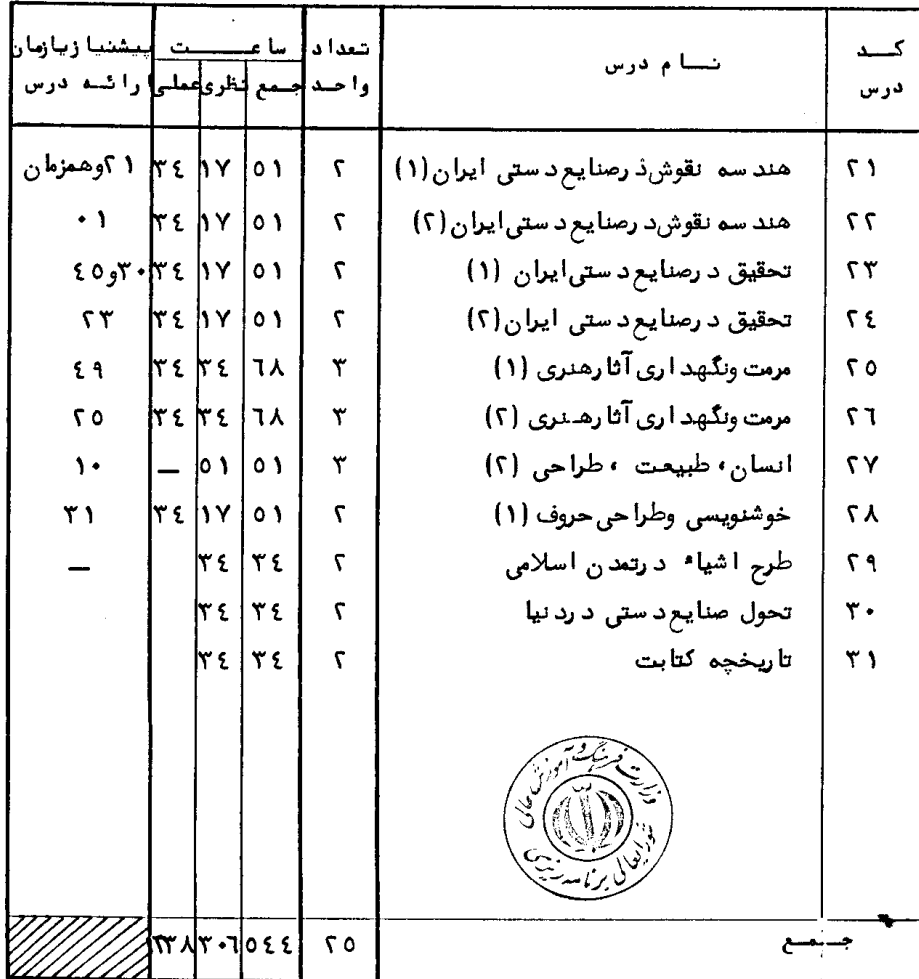 کد درس | نام درس | تعداد واحد | ساعت: جمع | نظری | عملی | پیشنیاز یا زمان ارائه درس
۲۱ | هندسه نقوش در صنایع دستی ایران (۱) | ۲ | ۵۱ | ۱۷ | ۳۴ | ۲۱ و همزمان
۲۲ | هندسه نقوش در صنایع دستی ایران (۲) | ۲ | ۵۱ | ۱۷ | ۳۴ | ۰۱
۲۳ | تحقیق در صنایع دستی ایران (۱) | ۲ | ۵۱ | ۱۷ | ۳۴ | ۳۰ و ۴۵
۲۴ | تحقیق در صنایع دستی ایران (۲) | ۲ | ۵۱ | ۱۷ | ۳۴ | ۲۳
۲۵ | مرمت و نگهداری آثار هنری (۱) | ۳ | ۶۸ | ۳۴ | ۳۴ | ۴۹
۲۶ | مرمت و نگهداری آثار هنری (۲) | ۳ | ۶۸ | ۳۴ | ۳۴ | ۲۵
۲۷ | انسان، طبیعت، طراحی (۲) | ۳ | ۵۱ | ۵۱ | — | ۱۰
۲۸ | خوشنویسی و طراحی حروف (۱) | ۲ | ۵۱ | ۱۷ | ۳۴ | ۳۱
۲۹ | طرح اشیاء در تمدن اسلامی | ۲ | ۳۴ | ۳۴ | | —
۳۰ | تحول صنایع دستی در دنیا | ۲ | ۳۴ | ۳۴
۳۱ | تاریخچه کتابت | ۲ | ۳۴ | ۳۴
وزارت فرهنگ و آموزش عالی
شورایعالی برنامه ریزی
جمع | ۲۵ | ۵۴۴ | ۳۰۶ | ۲۳۸